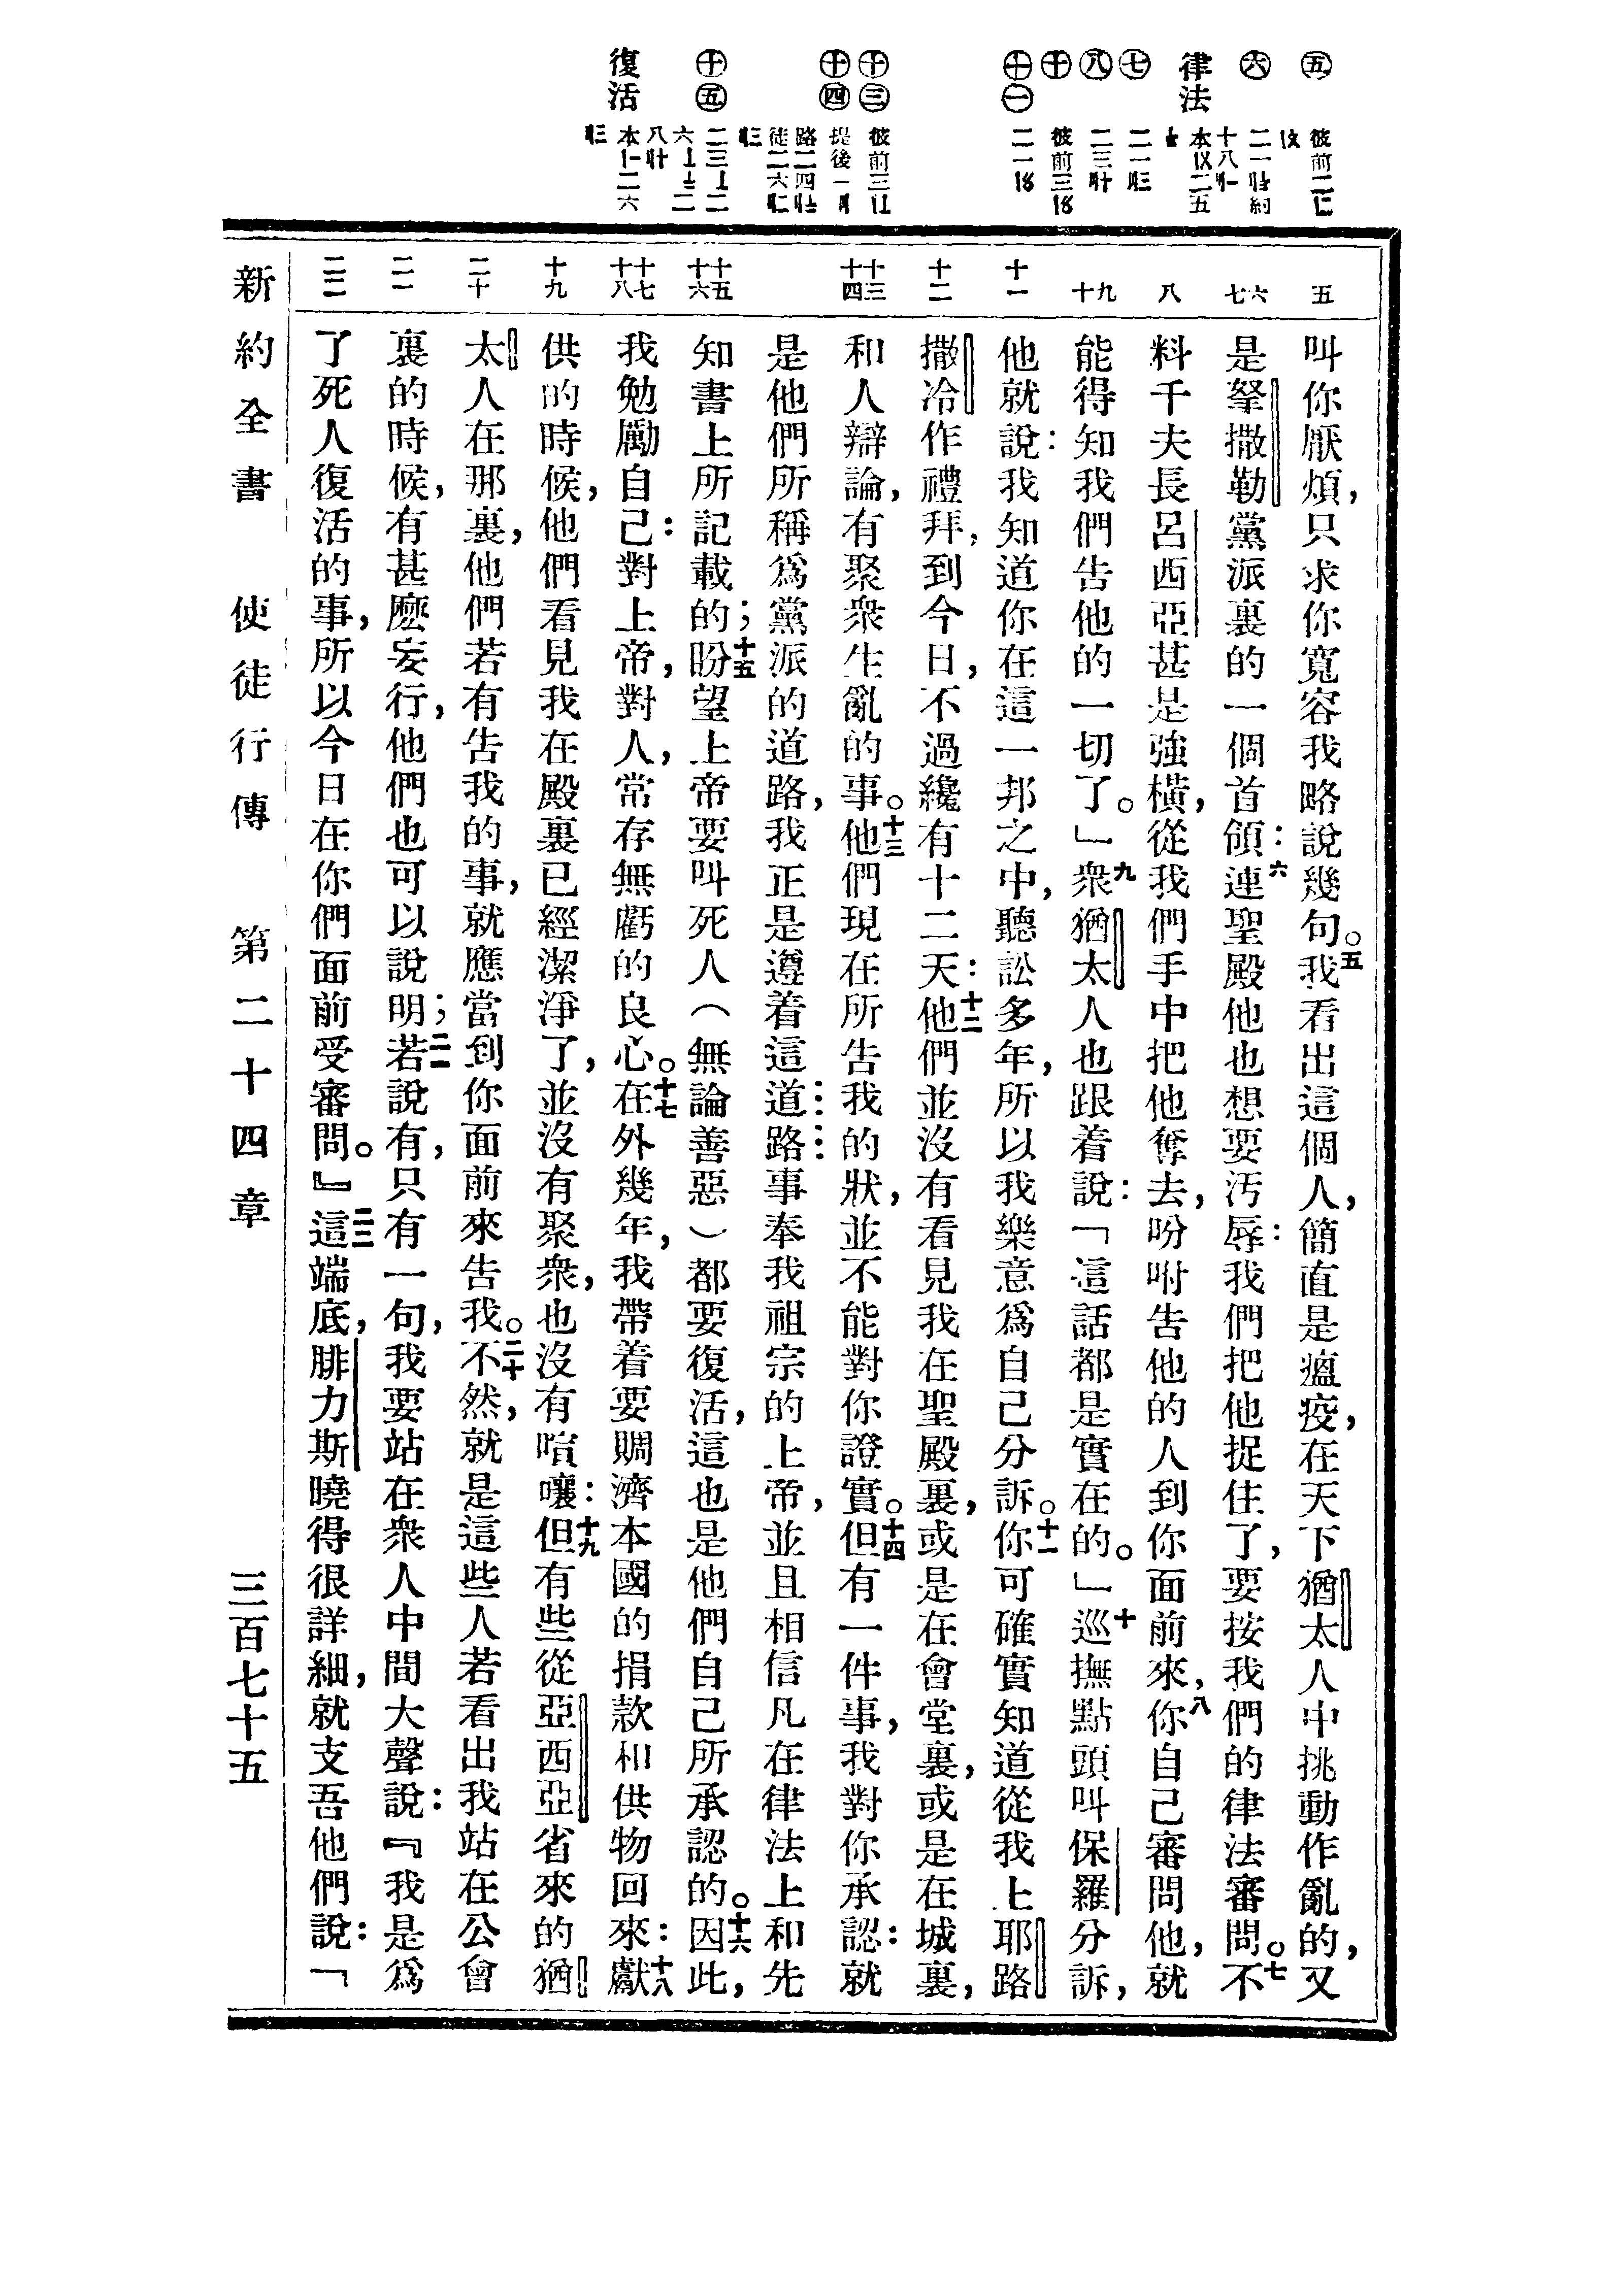 五
六
律法
七
八
十
十一
十三
十四
十五
復活
五
七六
八
十九
十一
十二
十四十三
十六十五
十八十七
十九
二十
二一
二二
叫你厭煩，只求你寬容我略說幾句。五我看出這個人，簡直是瘟疫，在天下猶太人中挑動作亂的，又
是拏撒勒黨派裏的一個首領：六連聖殿他也想要汚辱：我們把他捉住了，要按我們的律法審問。七不
料千夫長呂西亞甚是強橫，從我們手中把他奪去，吩咐告他的人到你面前來，八你自己審問他，就
能得知我們告他的一切了。」九衆猶太人也跟着說：「這話都是實在的。」十巡撫點頭叫保羅分訴，
他就說：我知道你在這一邦之中，聽訟多年，所以我樂意爲自己分訴。十一你可確實知道從我上耶路
撒冷作禮拜，到今日，不過纔有十二天：十二他們並沒有看見我在聖殿裏，或是在會堂裏，或是在城裏，
和人辯論，有聚衆生亂的事。十三他們現在所告我的狀，並不能對你證實。十四但有一件事，我對你承認：就
是他們所稱爲黨派的道路，我正是遵着這道路事奉我祖宗的上帝，並且相信凡在律法上和先
知書上所記載的；十五盼望上帝要叫死人（無論善惡）都要復活，這也是他們自己所承認的。十六因此，
我勉勵自己：對上帝，對人，常存無虧的良心。十七在外幾年，我帶着要賙濟本國的捐款和供物回來：十八獻
供的時候，他們看見我在殿裏已經潔淨了，並沒有聚衆，也沒有喧嚷：十九但有些從亞西亞省來的猶
太人在那裏，他們若有告我的事，就應當到你面前來告我。二十不然，就是這些人若看出我站在公會
裏的時候，有甚麼妄行，他們也可以說明；二一若說有，只有一句，我要站在衆人中間大聲說：『我是爲
了死人復活的事，所以今日在你們面前受審問。』二二這端底，腓力斯曉得很詳細，就支吾他們說：「
新約全書　使徒行傳　第二十四章　三百七十五